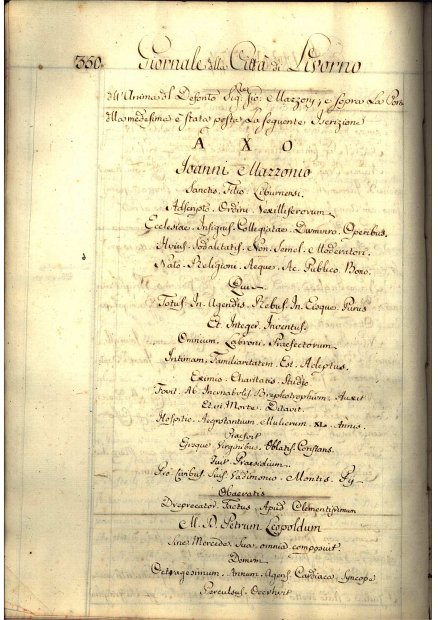 350. Giornale della Città di Livorno
all'Anima del Defonto Sig.r Gio. Mazzery, e sopra La Porta
della medesima è stata posta La seguente Iscrizione
A X O
Ioanni Mazzonio
Sanctis. Filio. Liburnensi.
Adscripto. Ordini. Vexilliferorum.
Ecclesiae. Insignis. Collegiatae. Duumviro. Operibus.
Huius. Sodalitatis. Non. Semel. Moderatori.
Nato. Religioni. Aeque. Ac. Publico. Bono.
Qui
Totus. In. Agendis. Rebus. In. Eisque. Purus
Et. Integer. Inventus.
Omnium. Labroni. Praefectorum.
Intimam. Familiaritatem. Est. Adeptus.
Eximio. Charitatis. Studio
Fovit. Ab. Brephotrophium. Auxit
Et in Morte. Ditavit.
Hospitio. Aegrotantium. Mulierum. XL. Annis.
Praefuit
Eisque. Virginibus. Oblatis. Constans.
Fuit. Praesidium.
Pro Civibus. Suis. Vadimonio. Montis. Py
Obaeratis
Deprecator. Factus. Apud. Clementissimum
M. D. Petrum. Leopoldum
Sine. Mercede. Sua. omnia. composuit.
Demum
Octogesimum. Annum. Agens. Cardiaca. Syncope
Perculsus. Occubuit